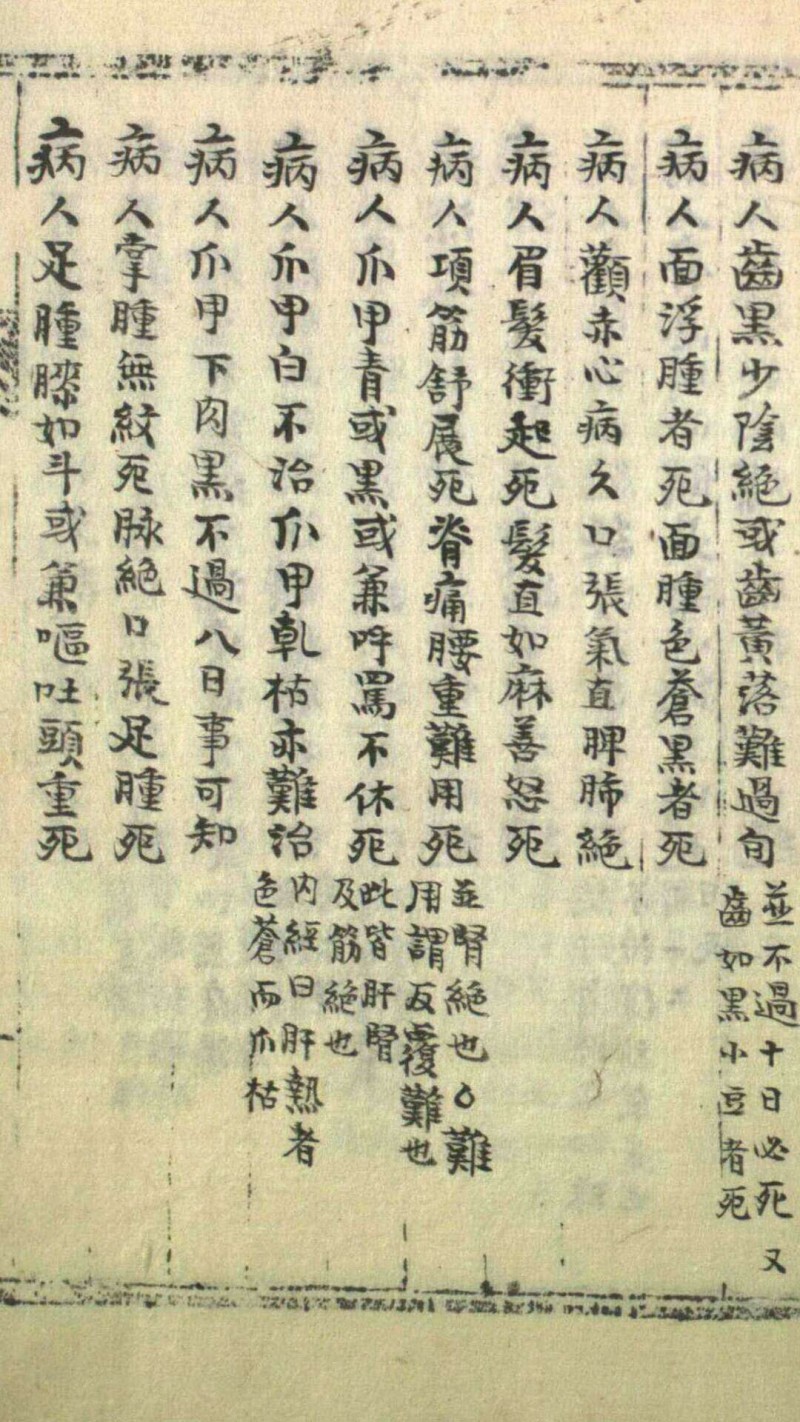 病人齒黑少陰絕或齒黃落難過旬
並不過十日必死又
齒如黑小豆者死
病人面浮腫者死面腫色蒼黑者死
病人顴赤心病久口張氣直脾肺絕
病人眉髮衝起死髮直如麻善怒死
病人項筋舒展死脊痛腰重難用死
並腎絕也○難
用謂反覆難也
病人爪甲青或黑或兼呼罵不休死
此皆肝腎
及筋絕也
病人爪甲白不治爪甲乹枯亦難治
內經曰肝熱者
色蒼而爪枯
病人爪甲下肉黑不過八日事可知
病人掌腫無紋死脉絕口張足腫死
病人足腫膝如斗或兼嘔吐頭重死